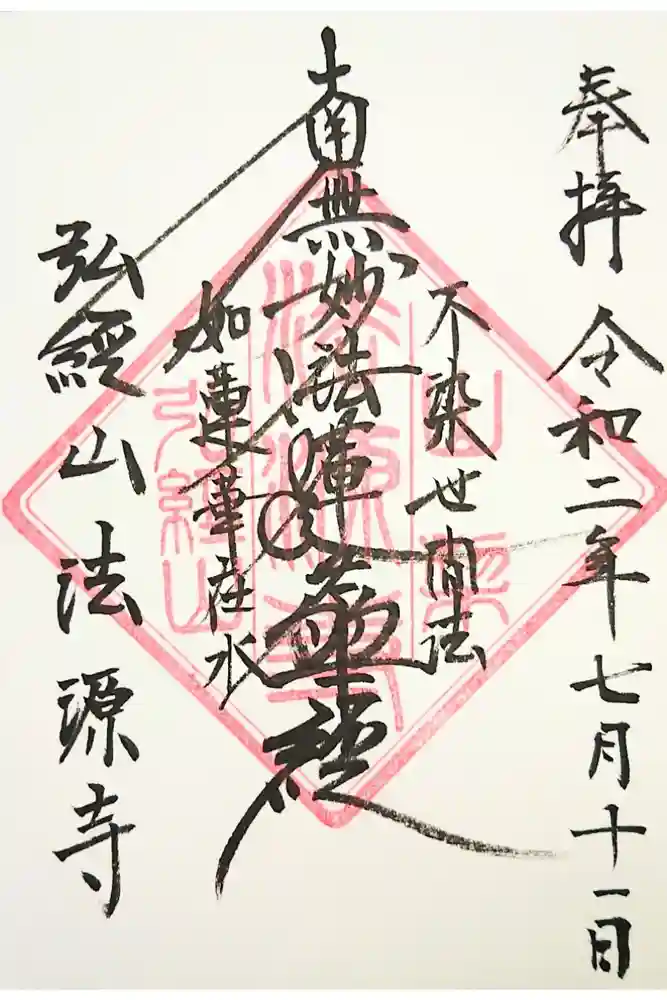 奉拝 令和二年七月十一日
不染世間法
南無妙法蓮華経
如蓮華在水
弘經山 法源寺
弘經山